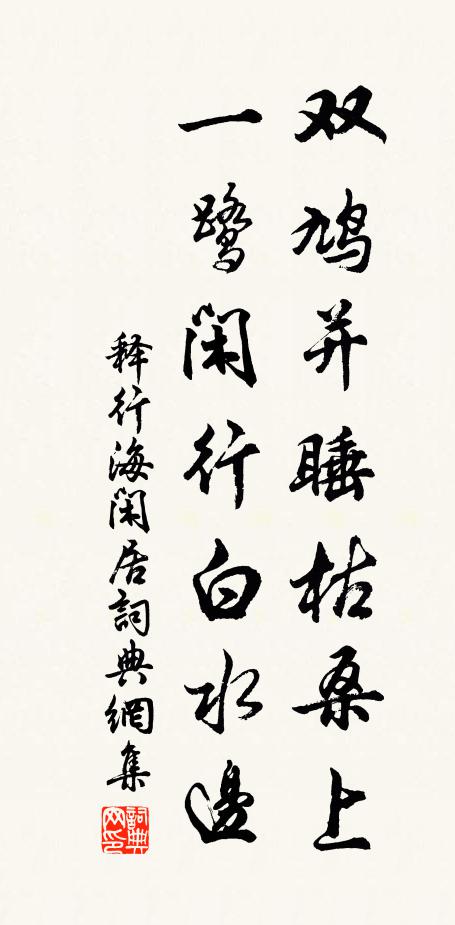 双鸠并睡枯桑上
一鹭闲行白水邊
释行海闲居詞典網集
詞典网印